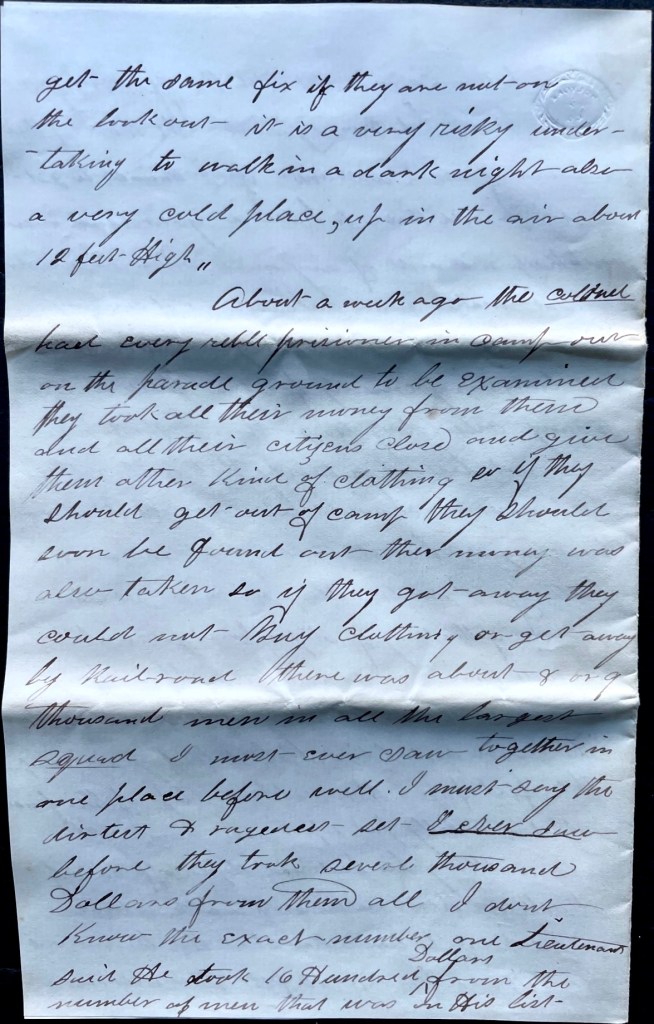 get the same fix if they are not on
the lookout it is a very risky under-
-taking to walk in a dark night also
a very cold place, up in the air about
12 feet High,,
About a week ago the colonel
had every rebll prisioner in camp out
on the parade ground to be examined
they took all their money from them
and all their citizens close and give
them other kind of clothing so if they
should get out of camp they should
soon be found out ther money was
also taken so if they got away they
could not Buy clothing or get away
by Railroad there was about 8 or 9
thousand men in all the largest
squad I most ever saw together in
one place before well. I must say the
dirtest & ragedest set I ever saw
before they took severl thousand
Dollars from them all I dont
Know the exact number, one Lieutenant
said He took 16 Hundred Dollars from the
number of men that was in His list